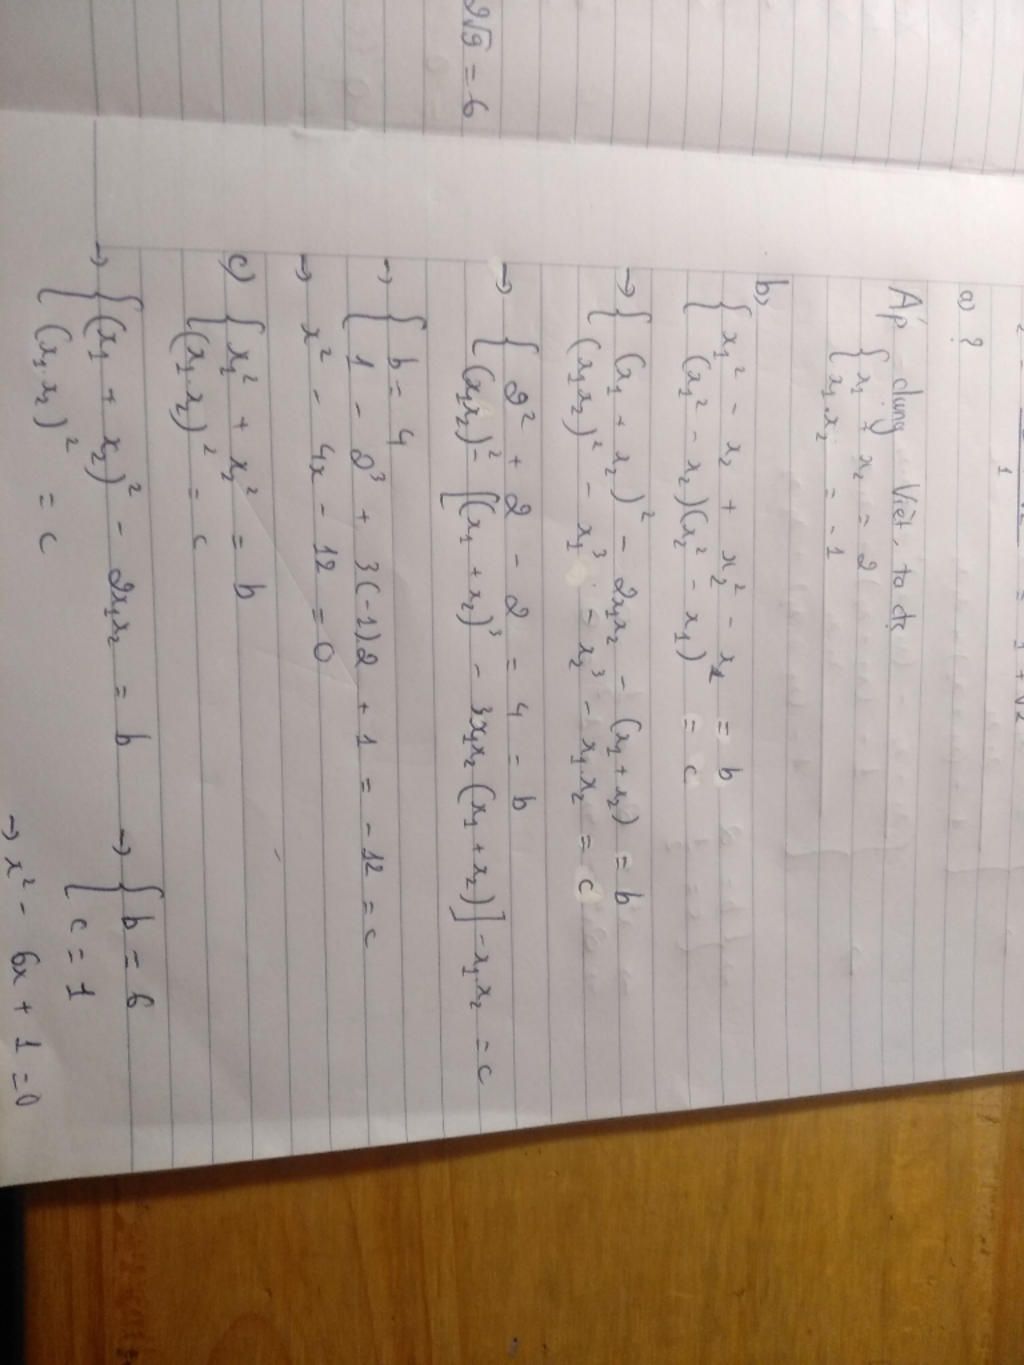 2√9 = 6
1
a) ?
Áp dụng Viét, ta đc
{ x₁ + x₂ = 2
{ x₁.x₂ = -1
b)
{ x₁² - x₂ + x₂² - x₁ = b
{ (x₁² - x₂)(x₂² - x₁) = c
→ { (x₁ + x₂)² - 2x₁x₂ - (x₁ + x₂) = b
{ (x₁x₂)² - x₁³ - x₂³ - x₁x₂ = c
→ { 2² + 2 - 2 = 4 = b
{ (x₁x₂)² - [(x₁ + x₂)³ - 3x₁x₂(x₁ + x₂)] - x₁x₂ = c
→ { b = 4
{ 1 - 2³ + 3(-1).2 + 1 = -12 = c
→ x² - 4x - 12 = 0
c) { x₁² + x₂² = b
{ (x₁.x₂)² = c
→ { (x₁ + x₂)² - 2x₁x₂ = b → { b = 6
{ (x₁.x₂)² = c { c = 1
→ x² - 6x + 1 = 0